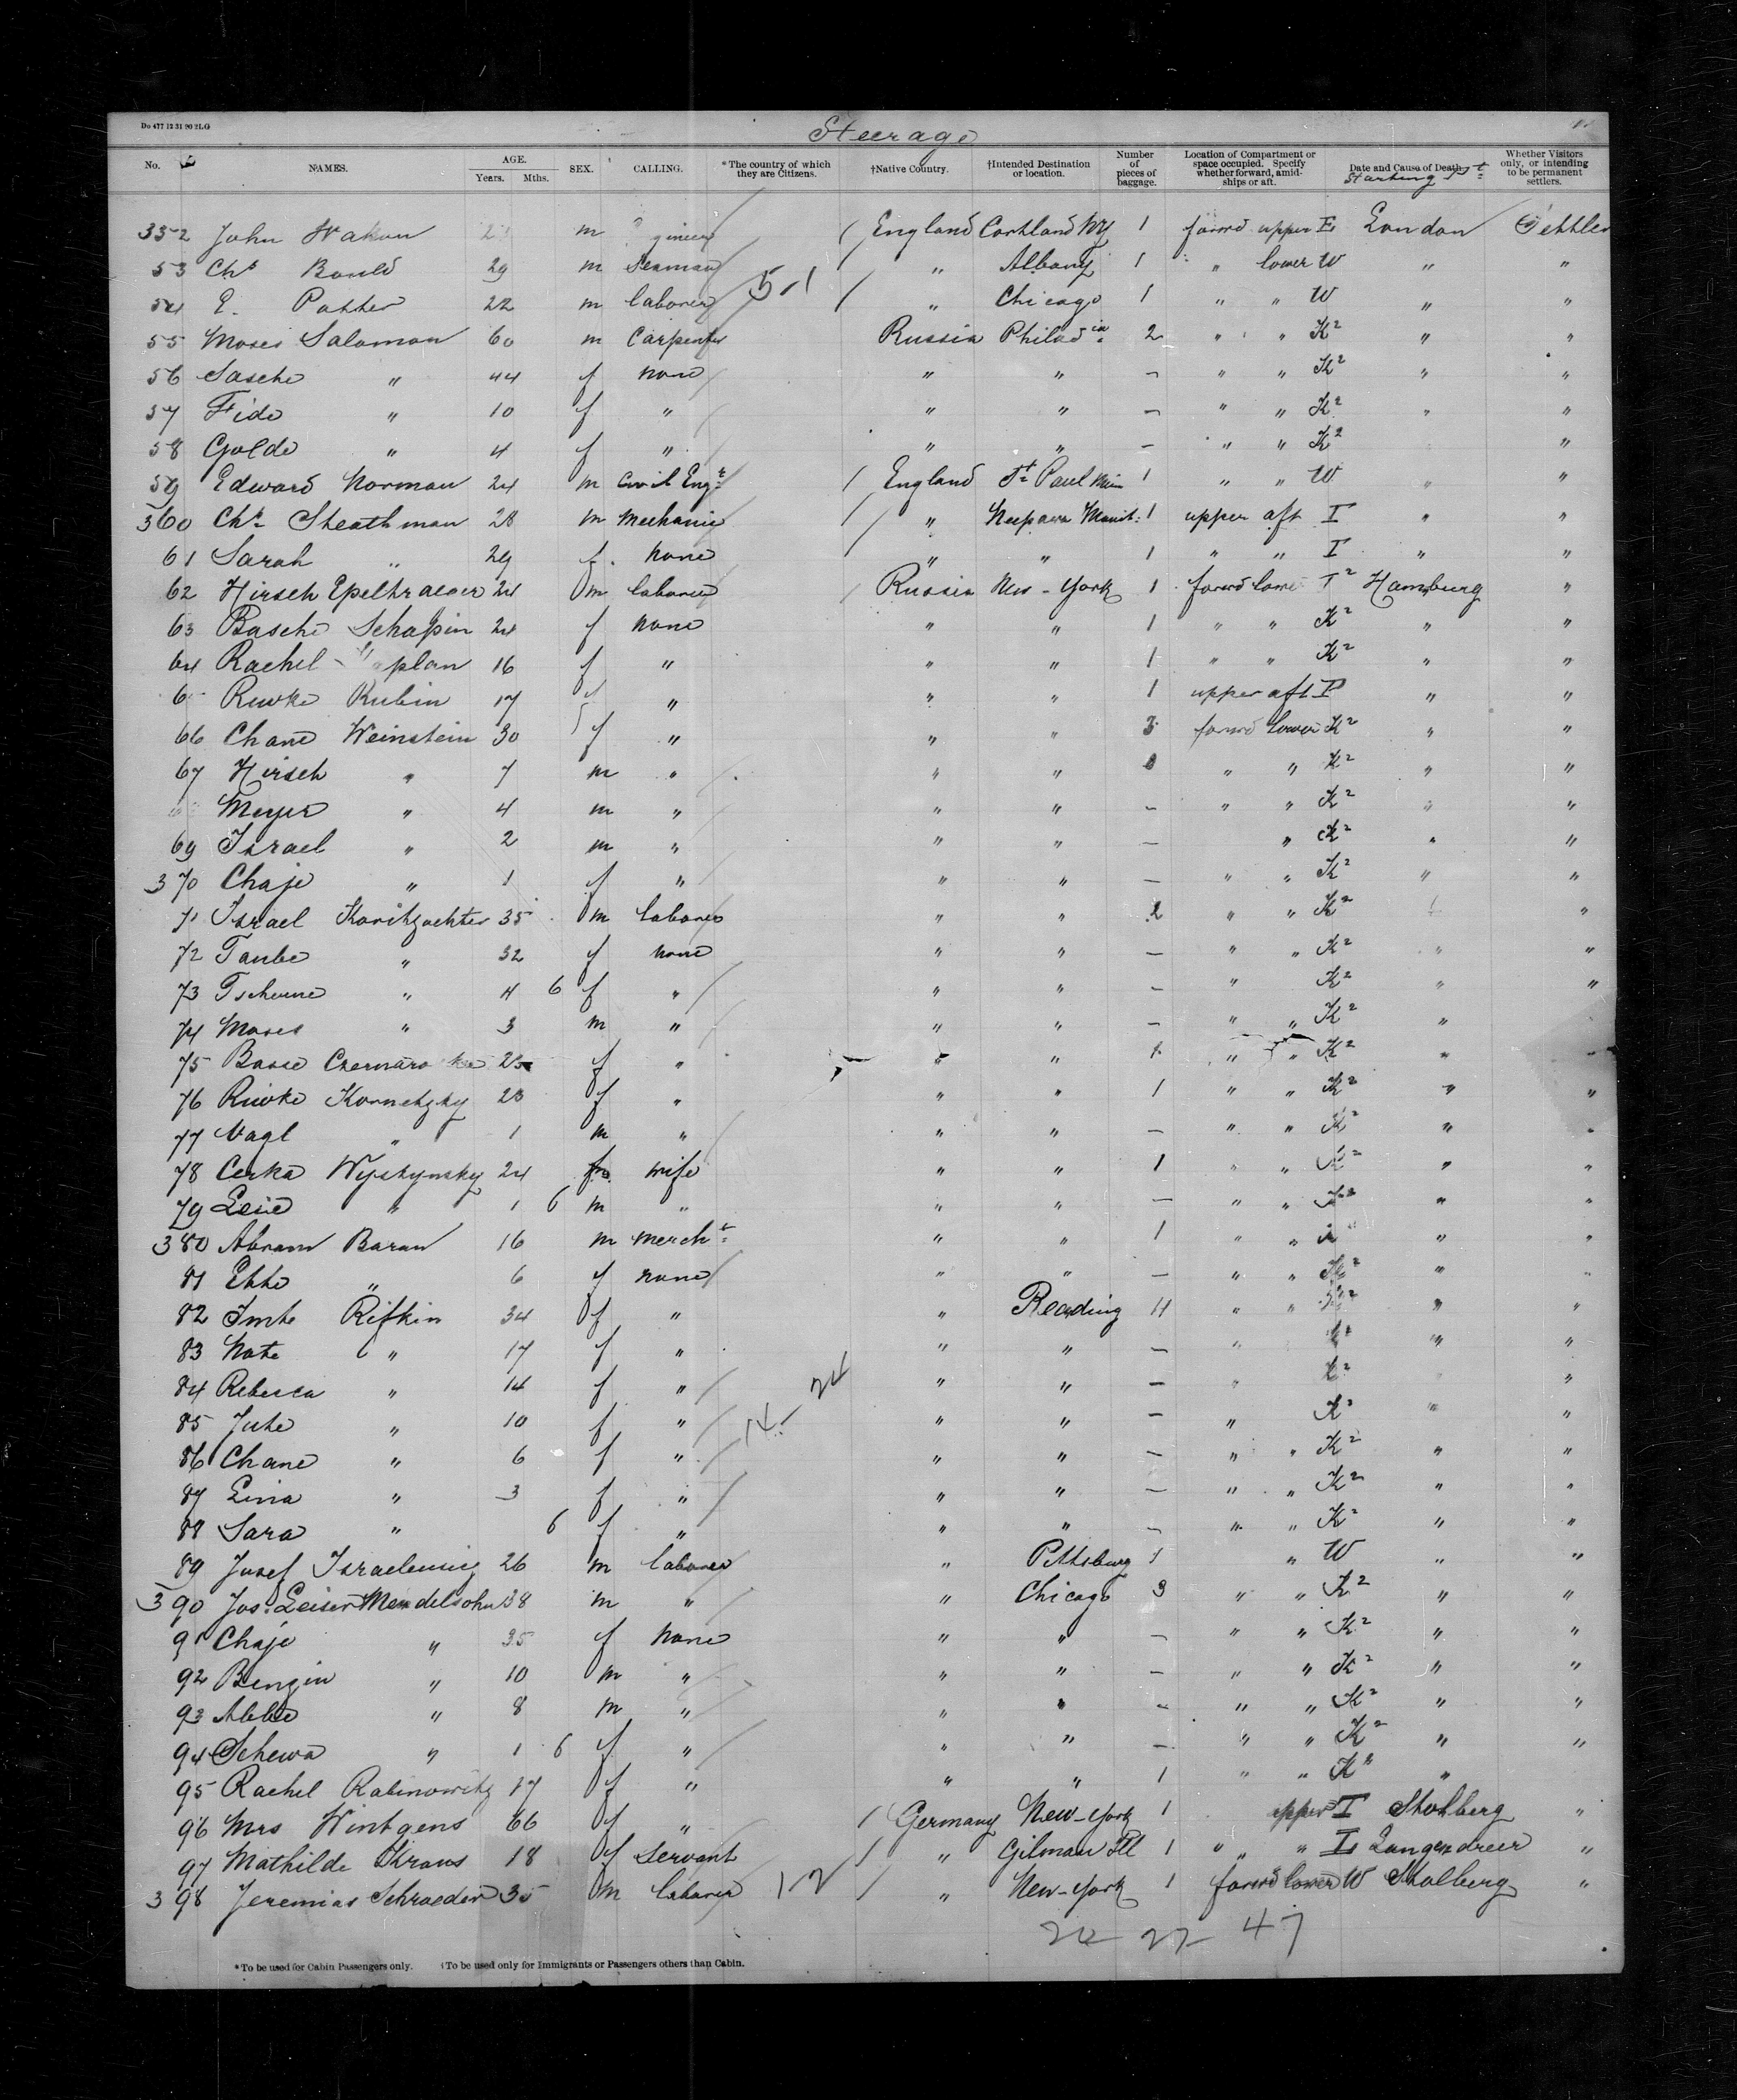 Do 477 12 31 90 2LG
Steerage
No. NAMES. AGE. Years. Mths. SEX. CALLING. *The country of which they are Citizens. †Native Country. †Intended Destination or location. Number of pieces of baggage. Location of Compartment or space occupied. Specify whether forward, amidships or aft. Date and Cause of Death. Starting Pt Whether Visitors only, or intending to be permanent settlers.
352 John m England Cortland NY 1 forwd upper London Settler
53 Chs Bould 29 m Seaman " Albany 1 " lower W " "
54 E. Potter 22 m laborer 5-1 " Chicago 1 " " W " "
55 Moses Salomon 60 m Carpenter Russia Philadia 2 " " K2 " "
56 Sasche " 44 f none " " — " " K2 " "
57 " 10 f " " " — " " K2 " "
58 Golde " 4 f " " " — " " K2 "
59 Edward Norman 24 m Civil Engr England St Paul Min 1 " " W " "
360 Chs Sheathman 28 m Mechanic " Neepawa Manit: 1 upper aft I " "
61 Sarah " 29 f none " " 1 " " I " "
62 Hirsch 24 m laborer Russia New-York 1 forwd lower I2 Hamburg "
63 Basche Schapin 24 f none " " 1 " " K2 " "
64 Rachel 16 f " " " 1 " " K2 " "
Riwke Rubin 17 f " " " 1 upper aft " "
66 Chane Weinstein 30 f " " " 3 forwd lower K2 " "
67 Hirsch " 7 m " " " " " K2 " "
Meyer " 4 m " " " — " " K2 " "
69 Israel " 2 m " " " — " K2 " "
370 Chaje " 1 f " " " — " " K2 " "
71 Israel 35 m laborer " " 2 " " K2 "
72 Taube " 32 f none " " — " " K2 " "
73 " 4 6 f " " " — " K2 " "
74 Moses " 3 m " " " — " " K2 "
75 Basse 25 f " " " 1 " " K2 " "
76 Riwke Kornetzky 28 f " " " 1 " " K2 " "
77 " 1 m " " " — " " K2 " "
78 Cerka Wyszynsky 24 f wife " " 1 " " K2 " "
79 " 1 6 m " " " — " " " "
380 Abram Baran 16 m mercht " " 1 " " " "
81 Etke " 6 f none " " — " " K2 " "
82 Rifkin 34 f " " Reading 4 " " " "
83 " 17 f " " " — " " "
84 Rebecca " 14 f " 14-24 " " — " K2 "
85 Jute " 10 f " " " — " K2 " "
86 Chane " 6 f " " " — " " K2 " "
87 " 3 f " " " — " " K2 " "
88 Sara " 6 f " " " — " " K2 " "
89 Josef 26 m laborer " Pittsburg 1 " W " "
390 Jos. Leiser Mendelsohn 38 m " " Chicago 3 " " K2 " "
91 Chaje " 35 f none " " — " " K2 " "
92 " 10 m " " " — " " K2 " "
93 " 8 m " " " — " " K2 " "
94 Schewa " 1 6 f " " " — " " K2 " "
95 Rachel Rabinowitz 17 f " " " 1 " " K2 "
96 Mrs Wintgens 66 f " Germany New-York 1 upper I Stolberg "
97 Mathilde 18 f Servant " Gilman Ill 1 " " Langendreer "
398 Jeremias Schroeder 35 m laborer 1-2 " New-York 1 forwd lower W Stolberg "
47
*To be used for Cabin Passengers only. †To be used only for Immigrants or Passengers others than Cabin.